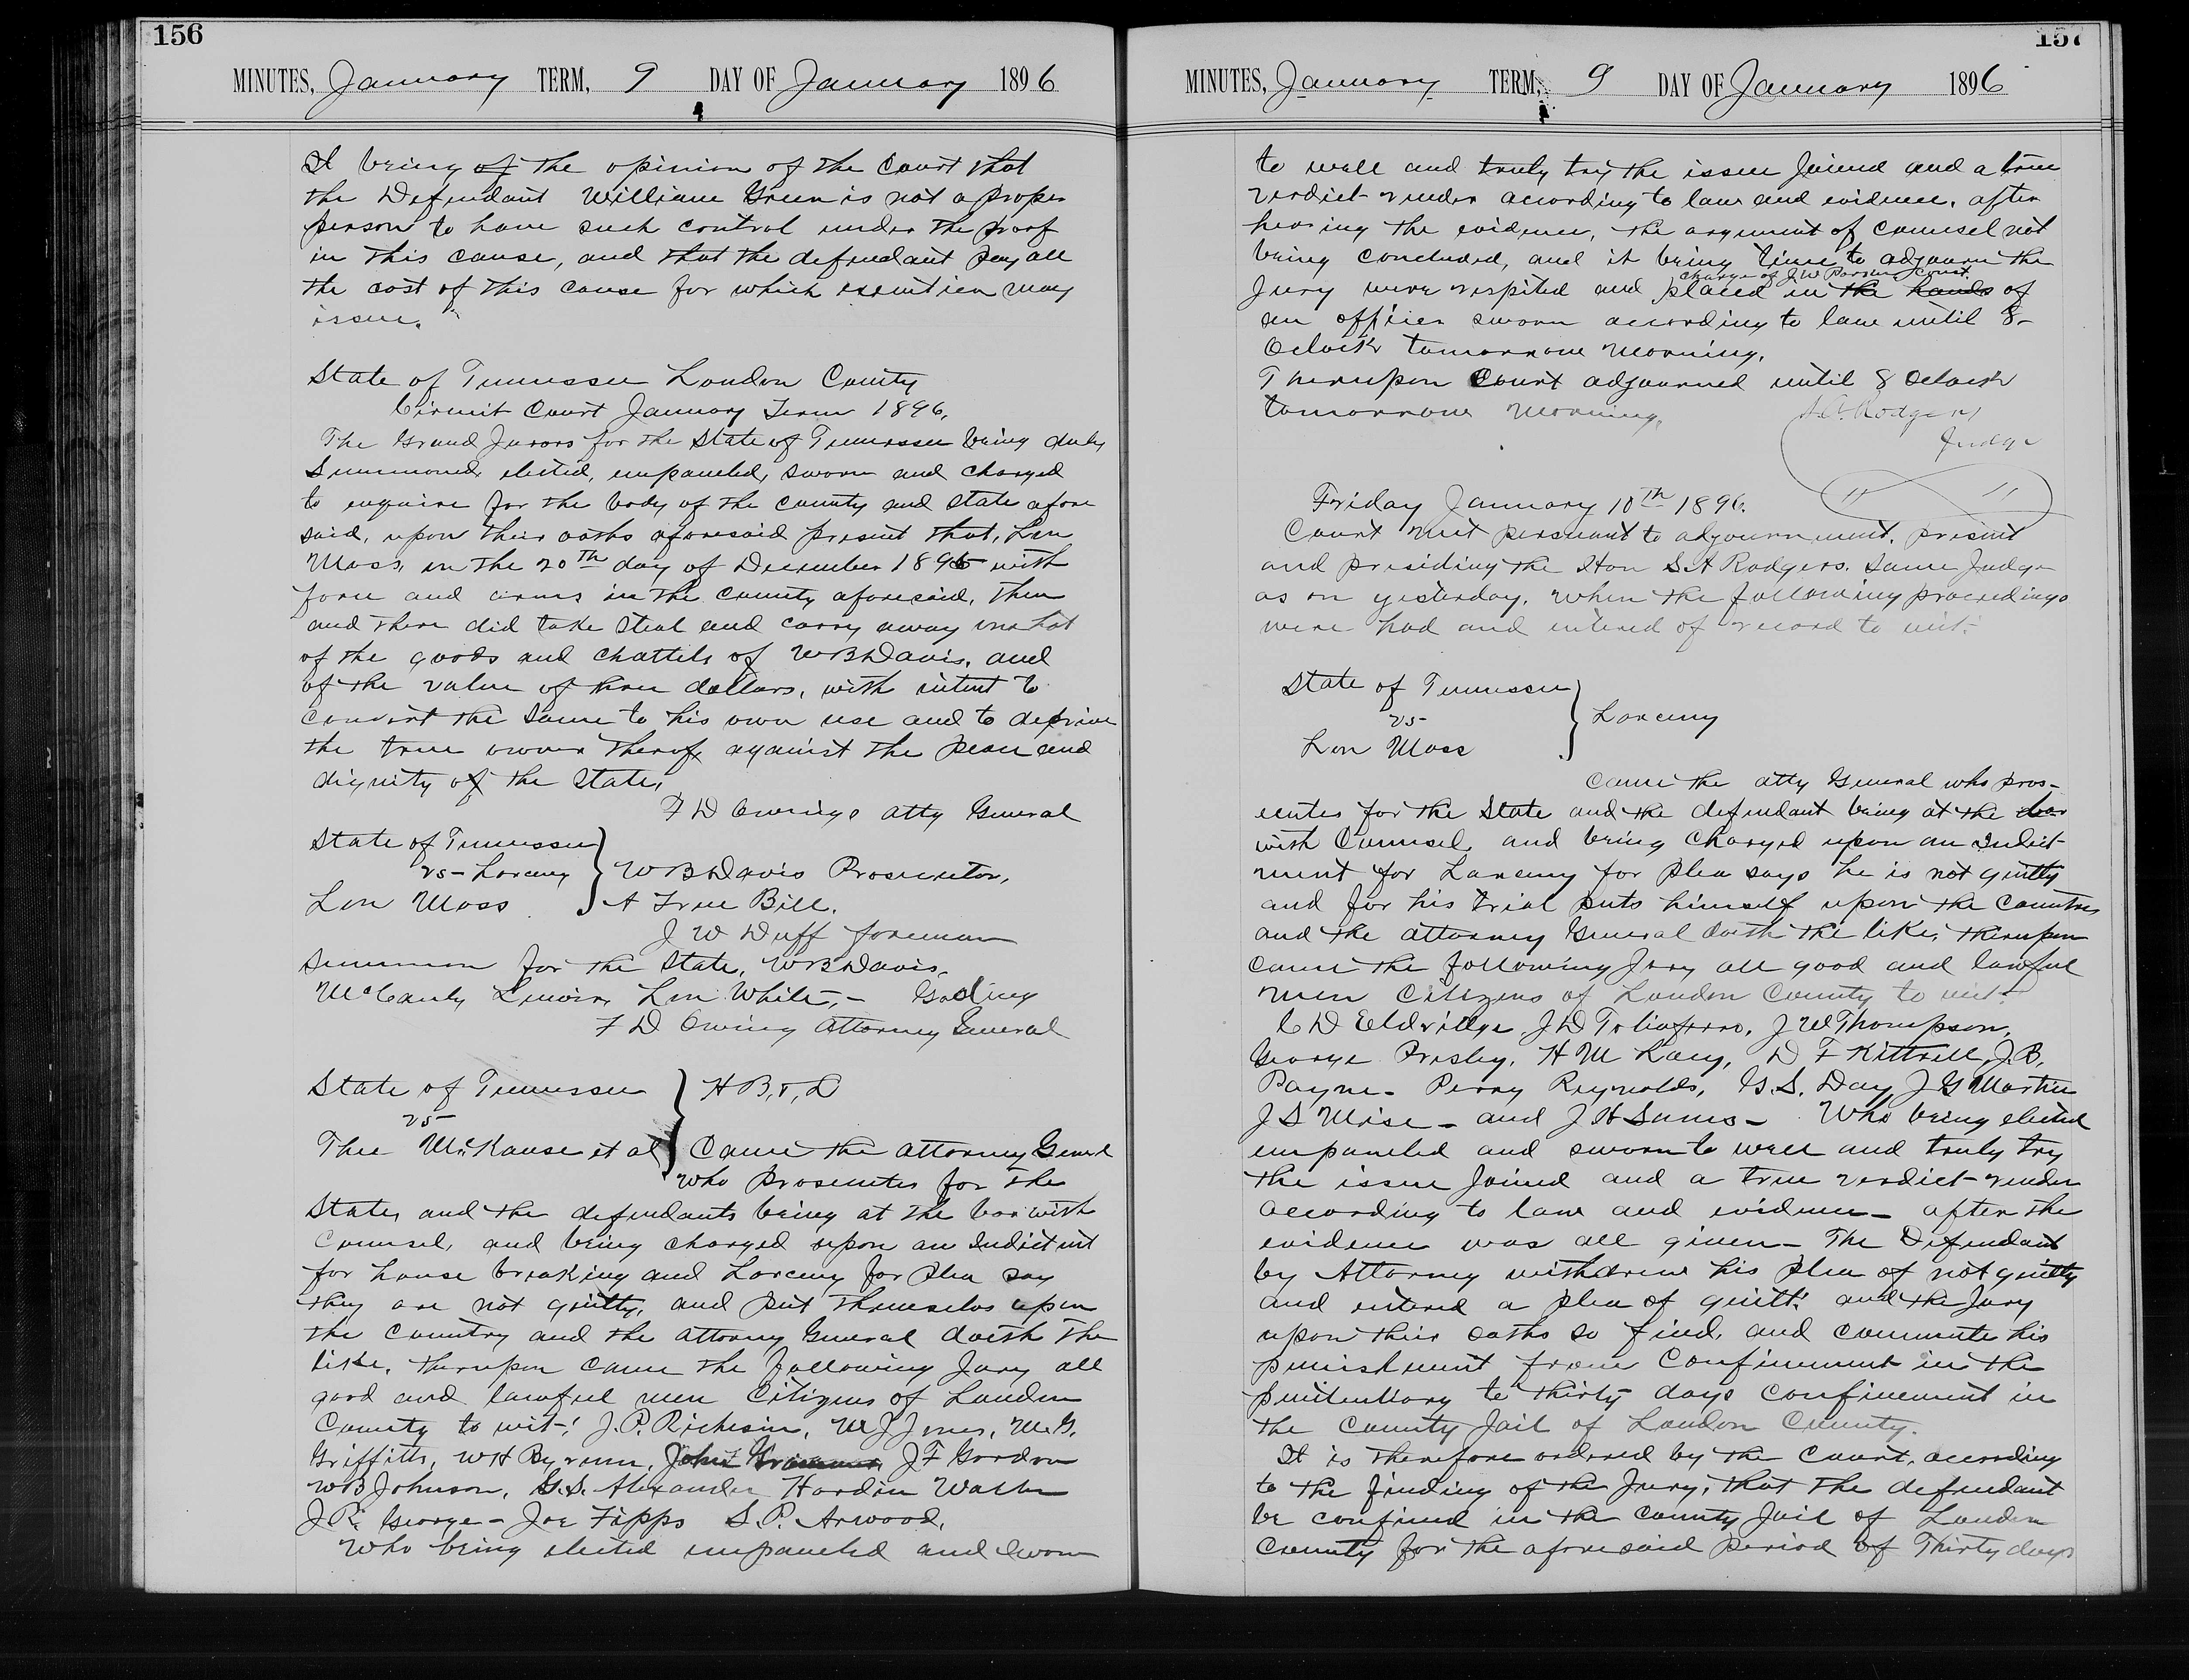 156
MINUTES, January TERM, 9 DAY OF January 1896
It being of the opinion of the Court that
the Defendant William Green is not a proper
person to have such control under the proof
in this cause, and that the defendant pay all
the cost of this cause for which execution may
issue.
State of Tennessee Loudon County
Circuit Court January Term 1896.
The Grand Jurors for the State of Tennessee being duly
Summoned, elected, empaneled, sworn and charged
to enquire for the body of the county and state afore
said, upon their oaths aforesaid present that, Lon
Moss, on the 20th day of December 1895 with
force and arms in the county aforesaid, then
and there did take steal and carry away one hat
of the goods and chattels of W B Davis, and
of the value of three dollars, with intent to
convert the same to his own use and to deprive
the true owner therof, against the peace and
dignity of the State,
F D Owings atty General
State of Tennessee
vs- Larceny } W B Davis Prosecutor,
Lon Moss } A True Bill.
J W Duff foreman
Summon for the State, W B Davis,
McCauly Lenoir, Lon White, -
F D Owings Attorney General
State of Tennessee } H B, &, L
vs
Thee McKause et al } Came the attorney General
who prosecutes for the
State, and the defendants being at the bar with
Counsel, and being charged upon an Indictmt
for house breaking and Larceny for plea say
they are not guilty, and put themselves upon
the country and the attorney General doeth the
like, thereupon came the following Jury all
good and lawful men Citizens of Loudon
County to wit:, J. P. Richesin, W J Jones, W. G.
Griffitts, W H Byrum, John J F Gordon
W B Johnson, G. S. Alexander Hardin Waller
J R. George - Joe Fipps S. P. Arwood,
Who being elected empaneled and sworn
157
MINUTES, January TERM, 9 DAY OF January 1896
to well and truly try the issue joined and a true
verdict render according to law and evidence, after
hearing the evidence, the argument of counsel not
being concluded, and it being time to adjourn the
charge of J W Const.
Jury were respited and placed in the hands of
an officer sworn according to law until 8-
Oclock tomorrow morning.
Thereupon Court adjourned until 8 Oclock
tomorrow morning.
S. A. Rodgers
Judge
Friday January 10th 1896.
Court met persuant to adjournment, present
and presiding the Hon S. A Rodgers. Same Judge
as on yesterday. When the following proceedings
were had and entered of record to wit:
State of Tennessee
vs- } Larceny
Lon Moss
Came the atty General who pros-
ecutes for the State and the defendant being at the bar
with Counsel, and being charged upon an Indict-
ment for Larceny for plea says he is not guilty
and for his trial puts himself upon the Country
and the attorney General doeth the like, thereupon
came the following Jury all good and lawful
men Citizens of Loudon County to wit:
C D Eldridge, J D Toliaferro, J W Thompson,
George Presley, H M Karg, D F Kittrell, J. B.
Payne - Perry Reynolds, G. S. Day, J G Martin
J S Wise - and J H Sams - Who being elected
empaneled and sworn to well and truly try
the issue joined and a true verdict render
according to law and evidence - after the
evidence was all given - The Defendant
by Attorney withdrew his plea of not guilty
and entered a plea of guilt: and the Jury
upon their oaths so find, and commute his
punishment from Confinement in the
penitentiary to thirty days confinement in
the County Jail of Loudon County.
It is therefore ordered by the Court, according
to the finding of the Jury, that the defendant
be confined in the County Jail of Loudon
County for the aforesaid period of Thirty days